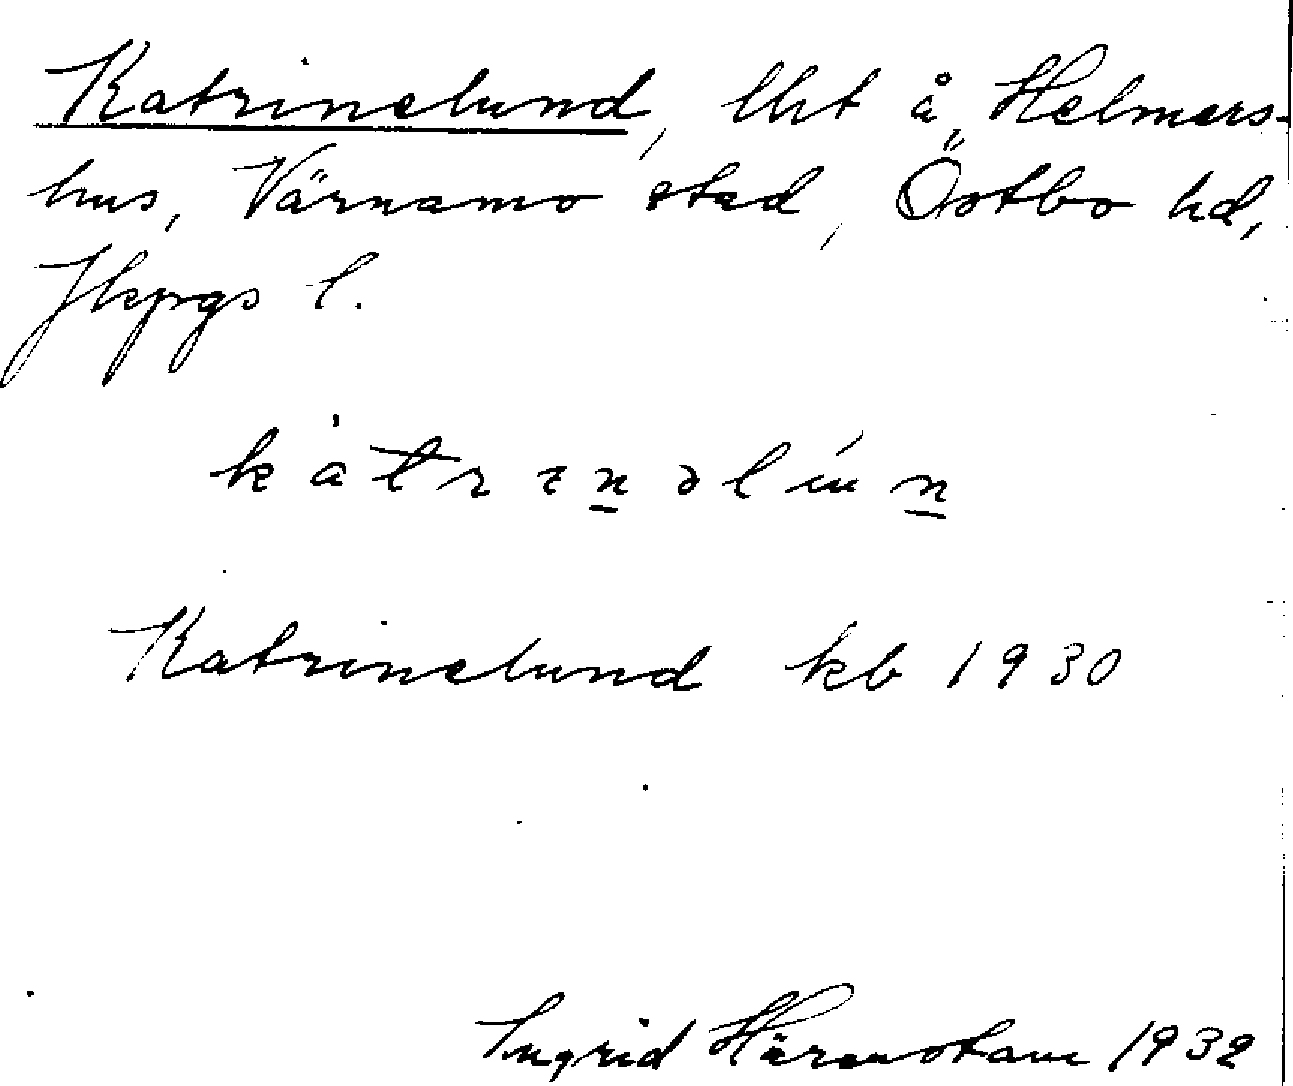 Katrinelund, lht å Helmers-
hus, Värnamo stad, Östbo hd,
Jkpgs l.
Katrinelund kb 1930
Ingrid 1932